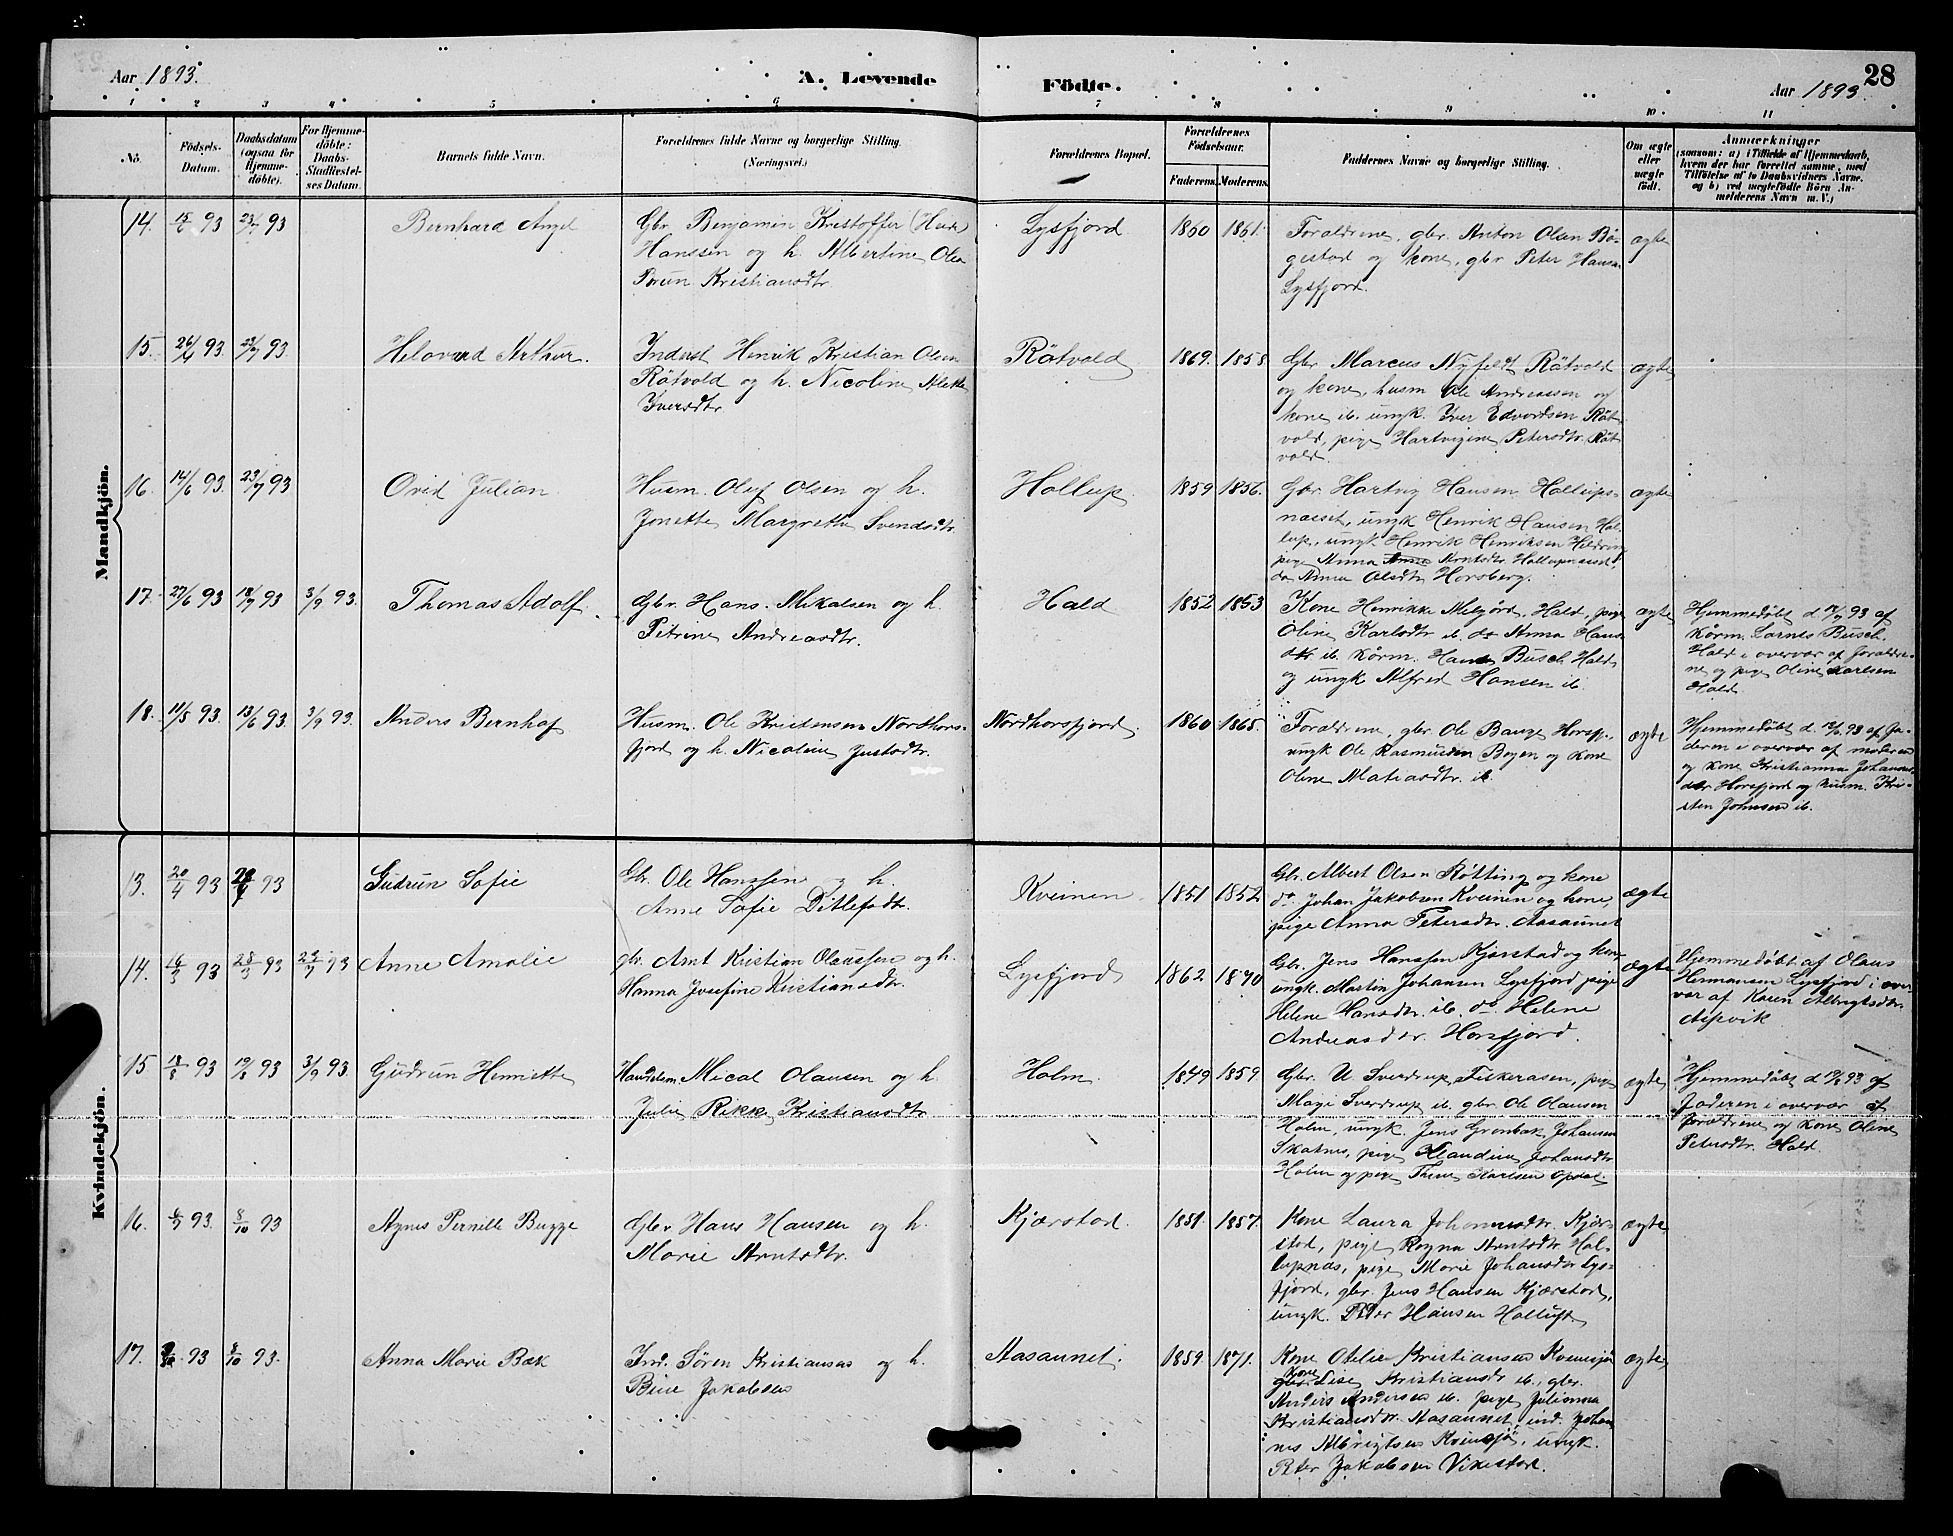 Aar 1893.
A. Levende
Födte.
28
Aar 1893.
1 2 3 4 5 6 7 8 9 10 11
No.
Födsels-
Datum.
Daabsdatum
(ogsaa for
Hjemme-
döbte).
For Hjemme-
döbte:
Daabs-
Stadfæstel-
ses Datum.
Barnets fulde Navn.
Forældrenes fulde Navne og borgerlige Stilling.
(Næringsvei.)
Forældrenes Bopæl.
Forældrenes
Födselsaar.
Faderens. Moderens.
Faddernes Navne og borgerlige Stilling.
Om ægte
eller
uægte
født.
Anmærkninger
(saasom: a) i Tilfælde af Hjemmedaab,
hvem der har forrettet samme, med
Tilföielse af to Daabsvidners Navne,
og b) ved uægtefödte Börn An-
melderens Navn m. V.)
Mandkjön.
14. 93 93 Bernhard Angel
Gbr Benjamin Kristoffer
Hanssen og h. Albertine Olea
Kristiansdtr.
Lysfjord 1860 1861.
Foraldrene, gbr. Anton Olsen Bø-
gestad og kone, gbr Peter Hansen
Lysfjord.
ægte
15. 26/4 93 93 Arthur.
Inderst Henrik Kristian Olsen
Røtvold og h. Nicoline
Iversdtr.
Røtvold 1869. 1858
Gbr Marcus Nyfeldt Røtvold
og kone, husm Ole Andreassen og
kone ib. ungk. Iver Edvardsen Røt-
vold, pige Hartvigine Petersdtr. Røt-
vold.
ægte
16. 14/6 93. 23/7 93 Ovid Julian
Husm. Oluf Olsen og h.
Jonette Margrethe Svendsdtr.
Hollup 1859 1856.
Gbr. Hartvig Hansen Hollups-
næsset, ungk Henrik Hansen Hol-
lup, ungk. Henrik Henriksen
pige Anna Arntsdtr.
do Anna Olsdtr Horsberg.
ægte
17. 27/6 93 18/7 93 3/9 93. Thomas Adolf.
Gbr. Hans Mikalsen og h.
Petrine Andreasdtr.
Hald 1852 1853
Kone Henrikke Hald, pige
Oline Karlsdtr ib. do Anna Hans-
dtr ib. Hans Busch Hald
og ungk Alfred Hansen ib.
ægte
Hjemmedøbt d. 93 af
Busch.
Hald i overvær af foraldre-
ne og pige Oline Karlsen
Hald
18. 11/5 93. 13/6 93. 3/9 93. Anders Bernhof
Husm. Ole Kristensen Nordhors-
fjord og h. Nicoline Justsdtr.
Nordhorsfjord. 1860 1865.
Foraldrene, gbr Ole Bauge Horsfj.
ungk Ole Rasmussen Bogen og kone
Oline Matiasdtr. ib.
ægte
Hjemmedøbt d. 93 af fa-
deren i overvær af moderen
og kone Kristianna Johannes-
dtr Horsfjord og husm. Kri-
sten Johnsen ib.
Kvindekjön.
13. 20/4 93 93 Gudrun Sofie
Gbr. Ole Hanssen og h.
Anne Sofie Ditlefsdtr.
Kveinen 1851 1852
Gbr. Albert Olsen Røtting og kone
do. Johan Jakobsen Kveinen og kone,
pige Anna Petersdtr. Aasaunet
ægte
14. 93 28/3 93 93 Anne Amalie
gbr. Arnt Kristian Olaussen og h.
Hanna Josefine Kristiansdtr.
Lysfjord 1862 1870
Gbr. Jens Hanssen Kjærstad og kone,
ungk. Morten Johansen Lysfjord pige
Helene Hansdtr. ib. do Helene
Andreasdtr. Horsfjord.
ægte
Hjemmedøbt af Olaus
Hermansen Lysfjord i over-
vær af Karen Albregtsdtr.
Aspvik
15 18/8 93 19/8 93 3/9 93. Gudrun Henriette
Handelsm Mical Olausen og h.
Julie Rikke Kristiansdtr
Holm. 1849 1859
Gbr. U. Sverdrup, Fiskerasen, pige
Magi Sverdrup ib. gbr Ole Olausen
Holm, ungk. Jens Grønbæk Johansen
Skatnes, pige Klaudine Johansdtr
Holm og pige Karlsen Opdal.
ægte
Hjemmedøbt d 93 af
faderen i overvær af
forældrene og kone Oline
Petersdtr. Hald.
16. 93. 8/10 93 Agnes Pernille Bugge
Gbr Hans Hansen og h.
Marie Arntsdtr.
Kjærstad. 1851. 1857.
Kone Laura Johannesdtr. Kjær-
stad, pige Ragna Arntsdtr. Hol-
lupnæs, pige Marie Johansdtr Lys-
fjord, gbr. Jens Hansen Kjærstad,
ungk. Peder Hansen
ægte
17. 93 8/10 93. Anna Marie Bæk
Ind. Søren Kristiansen og h.
Jakobsen
Aasaunet. 1859. 1871.
Kone Otelie Kristiansen Kveinsjø
kone
Lise Kristiansdr ib., gbr.
Anders Andersen ib. pige Julianna
Kristiansdtr. Aasaunet, ind. Johan-
nes Albrigtsen, ungk.
Peter Jakobsen Vikestad.
ægte